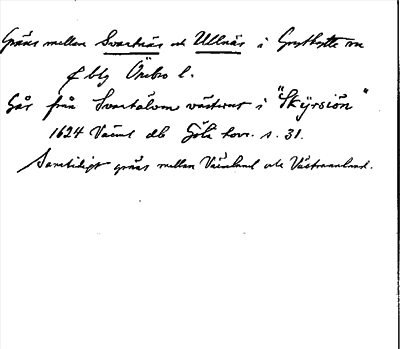 Gräns mellan Svartnäs och Ullnäs i Grythytte sn
f blg Örebro l.
Går från Svartälven västerut i "Skyrsiön"
1624 Värml db Göta hovr. s. 31.
Samtidigt gräns mellan Värmland och Västmanland.